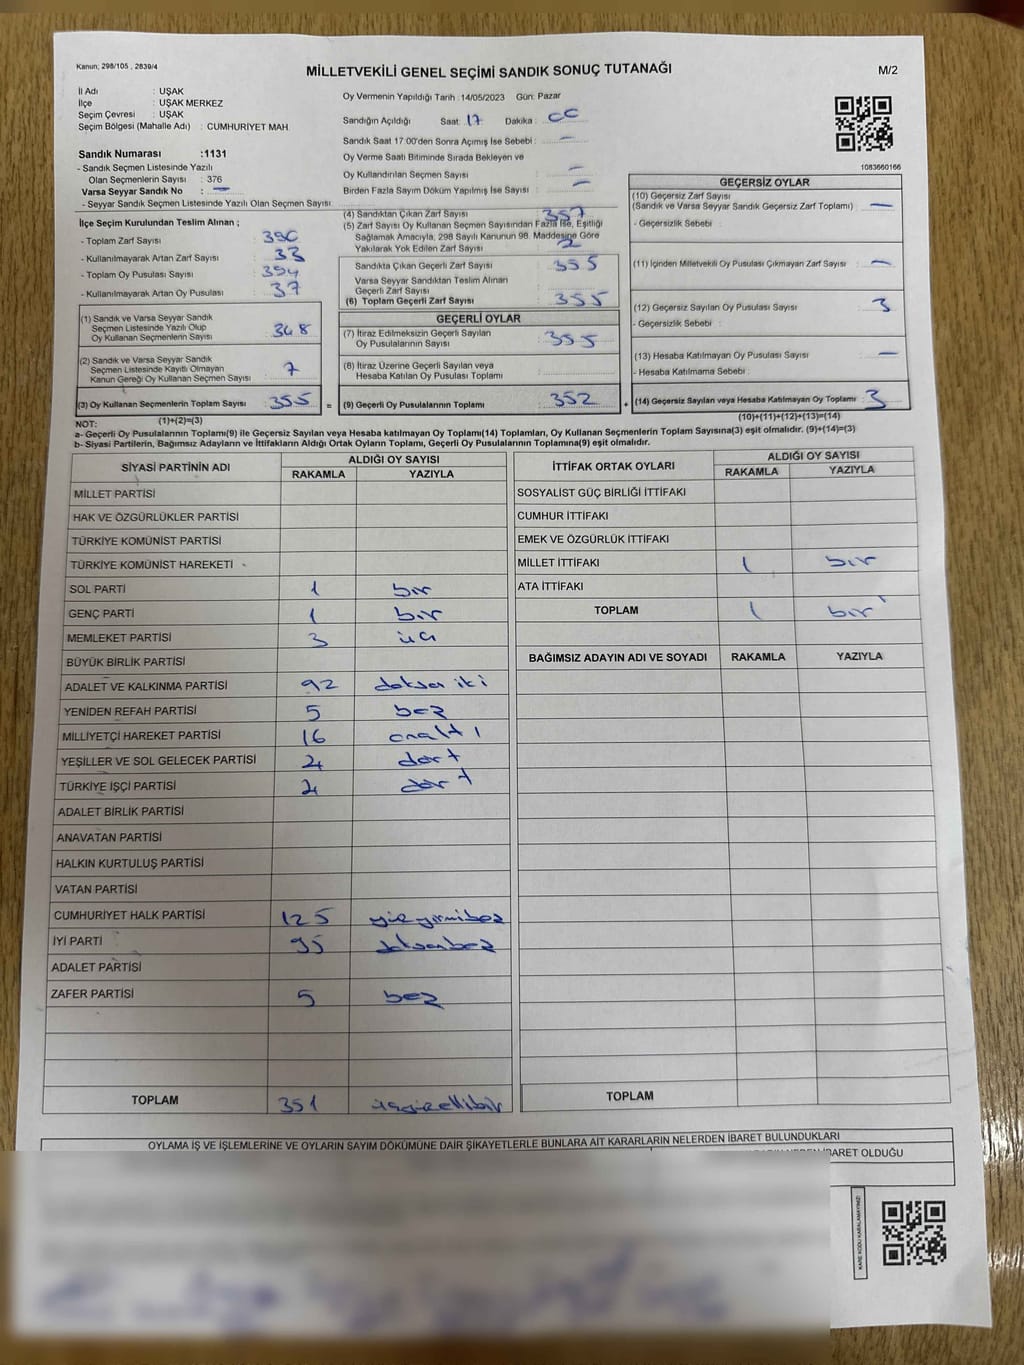 Kanun; 298/105 , 2839/4
MİLLETVEKİLİ GENEL SEÇİMİ SANDIK SONUÇ TUTANAĞI
M/2
İl Adı : UŞAK
İlçe : UŞAK MERKEZ
Seçim Çevresi : UŞAK
Seçim Bölgesi (Mahalle Adı) : CUMHURİYET MAH.
Sandık Numarası :1131
- Sandık Seçmen Listesinde Yazılı
Olan Seçmenlerin Sayısı : 376
Varsa Seyyar Sandık No : —
- Seyyar Sandık Seçmen Listesinde Yazılı Olan Seçmen Sayısı
Oy Vermenin Yapıldığı Tarih :14/05/2023 Gün: Pazar
Sandığın Açıldığı Saat: 17 Dakika :
Sandık Saat 17.00'den Sonra Açımış İse Sebebi : —
Oy Verme Saati Bitiminde Sırada Bekleyen ve
Oy Kullandırılan Seçmen Sayısı —
Birden Fazla Sayım Döküm Yapılmış İse Sayısı —
1083660166
İlçe Seçim Kurulundan Teslim Alınan ;
- Toplam Zarf Sayısı : 390
- Kullanılmayarak Artan Zarf Sayısı : 33
- Toplam Oy Pusulası Sayısı : 394
- Kullanılmayarak Artan Oy Pusulası : 37
(1) Sandık ve Varsa Seyyar Sandık
Seçmen Listesinde Yazılı Olup
Oy Kullanan Seçmenlerin Sayısı : 348
(2) Sandık ve Varsa Seyyar Sandık
Seçmen Listesinde Kayıtlı Olmayan
Kanun Gereği Oy Kullanan Seçmen Sayısı : 7
(3) Oy Kullanan Seçmenlerin Toplam Sayısı : 355
(4) Sandıktan Çıkan Zarf Sayısı 357
(5) Zarf Sayısı Oy Kullanan Seçmen Sayısından Fazla İse, Eşitliği
Sağlamak Amacıyla, 298 Sayılı Kanunun 98. Maddesine Göre
Yakılarak Yok Edilen Zarf Sayısı : 2
Sandıkta Çıkan Geçerli Zarf Sayısı : 355
Varsa Seyyar Sandıktan Teslim Alınan
Geçerli Zarf Sayısı
(6) Toplam Geçerli Zarf Sayısı : 355
GEÇERLİ OYLAR
(7) İtiraz Edilmeksizin Geçerli Sayılan
Oy Pusulalarının Sayısı : 355
(8) İtiraz Üzerine Geçerli Sayılan veya
Hesaba Katılan Oy Pusulası Toplamı :
= (9) Geçerli Oy Pusulalarının Toplamı : 352 +
GEÇERSİZ OYLAR
(10) Geçersiz Zarf Sayısı
(Sandık ve Varsa Seyyar Sandık Geçersiz Zarf Toplamı) : —
- Geçersizlik Sebebi :
(11) İçinden Milletvekili Oy Pusulası Çıkmayan Zarf Sayısı : —
(12) Geçersiz Sayılan Oy Pusulası Sayısı : 3
- Geçersizlik Sebebi :
(13) Hesaba Katılmayan Oy Pusulası Sayısı : —
- Hesaba Katılmama Sebebi :
(14) Geçersiz Sayılan veya Hesaba Katılmayan Oy Toplamı : 3
(1)+(2)=(3)
(10)+(11)+(12)+(13)=(14)
NOT:
a- Geçerli Oy Pusulalarının Toplamı(9) ile Geçersiz Sayılan veya Hesaba katılmayan Oy Toplamı(14) Toplamları, Oy Kullanan Seçmenlerin Toplam Sayısına(3) eşit olmalıdır. (9)+(14)=(3)
b- Siyasi Partilerin, Bağımsız Adayların ve İttifakların Aldığı Ortak Oyların Toplamı, Geçerli Oy Pusulalarının Toplamına(9) eşit olmalıdır.
SİYASİ PARTİNİN ADI ALDIĞI OY SAYISI
RAKAMLA YAZIYLA
MİLLET PARTİSİ
HAK VE ÖZGÜRLÜKLER PARTİSİ
TÜRKİYE KOMÜNİST PARTİSİ
TÜRKİYE KOMÜNİST HAREKETİ
SOL PARTİ 1 bir
GENÇ PARTİ 1 bir
MEMLEKET PARTİSİ 3 üç
BÜYÜK BİRLİK PARTİSİ
ADALET VE KALKINMA PARTİSİ 92 doksan iki
YENİDEN REFAH PARTİSİ 5 beş
MİLLİYETÇİ HAREKET PARTİSİ 16 onaltı
YEŞİLLER VE SOL GELECEK PARTİSİ 4 dört
TÜRKİYE İŞÇİ PARTİSİ 4 dört
ADALET BİRLİK PARTİSİ
ANAVATAN PARTİSİ
HALKIN KURTULUŞ PARTİSİ
VATAN PARTİSİ
CUMHURİYET HALK PARTİSİ 125 yüzyirmibeş
İYİ PARTİ 95 doksanbeş
ADALET PARTİSİ
ZAFER PARTİSİ 5 beş
TOPLAM 351 üçyüzellibir
İTTİFAK ORTAK OYLARI ALDIĞI OY SAYISI
RAKAMLA YAZIYLA
SOSYALİST GÜÇ BİRLİĞİ İTTİFAKI
CUMHUR İTTİFAKI
EMEK VE ÖZGÜRLÜK İTTİFAKI
MİLLET İTTİFAKI 1 bir
ATA İTTİFAKI
TOPLAM 1 bir
BAĞIMSIZ ADAYIN ADI VE SOYADI RAKAMLA YAZIYLA
TOPLAM
OYLAMA İŞ VE İŞLEMLERİNE VE OYLARIN SAYIM DÖKÜMÜNE DAİR ŞİKAYETLERLE BUNLARA AİT KARARLARIN NELERDEN İBARET BULUNDUKLARI
İBARET OLDUĞU
KARE KODU KARALAMAYINIZ!